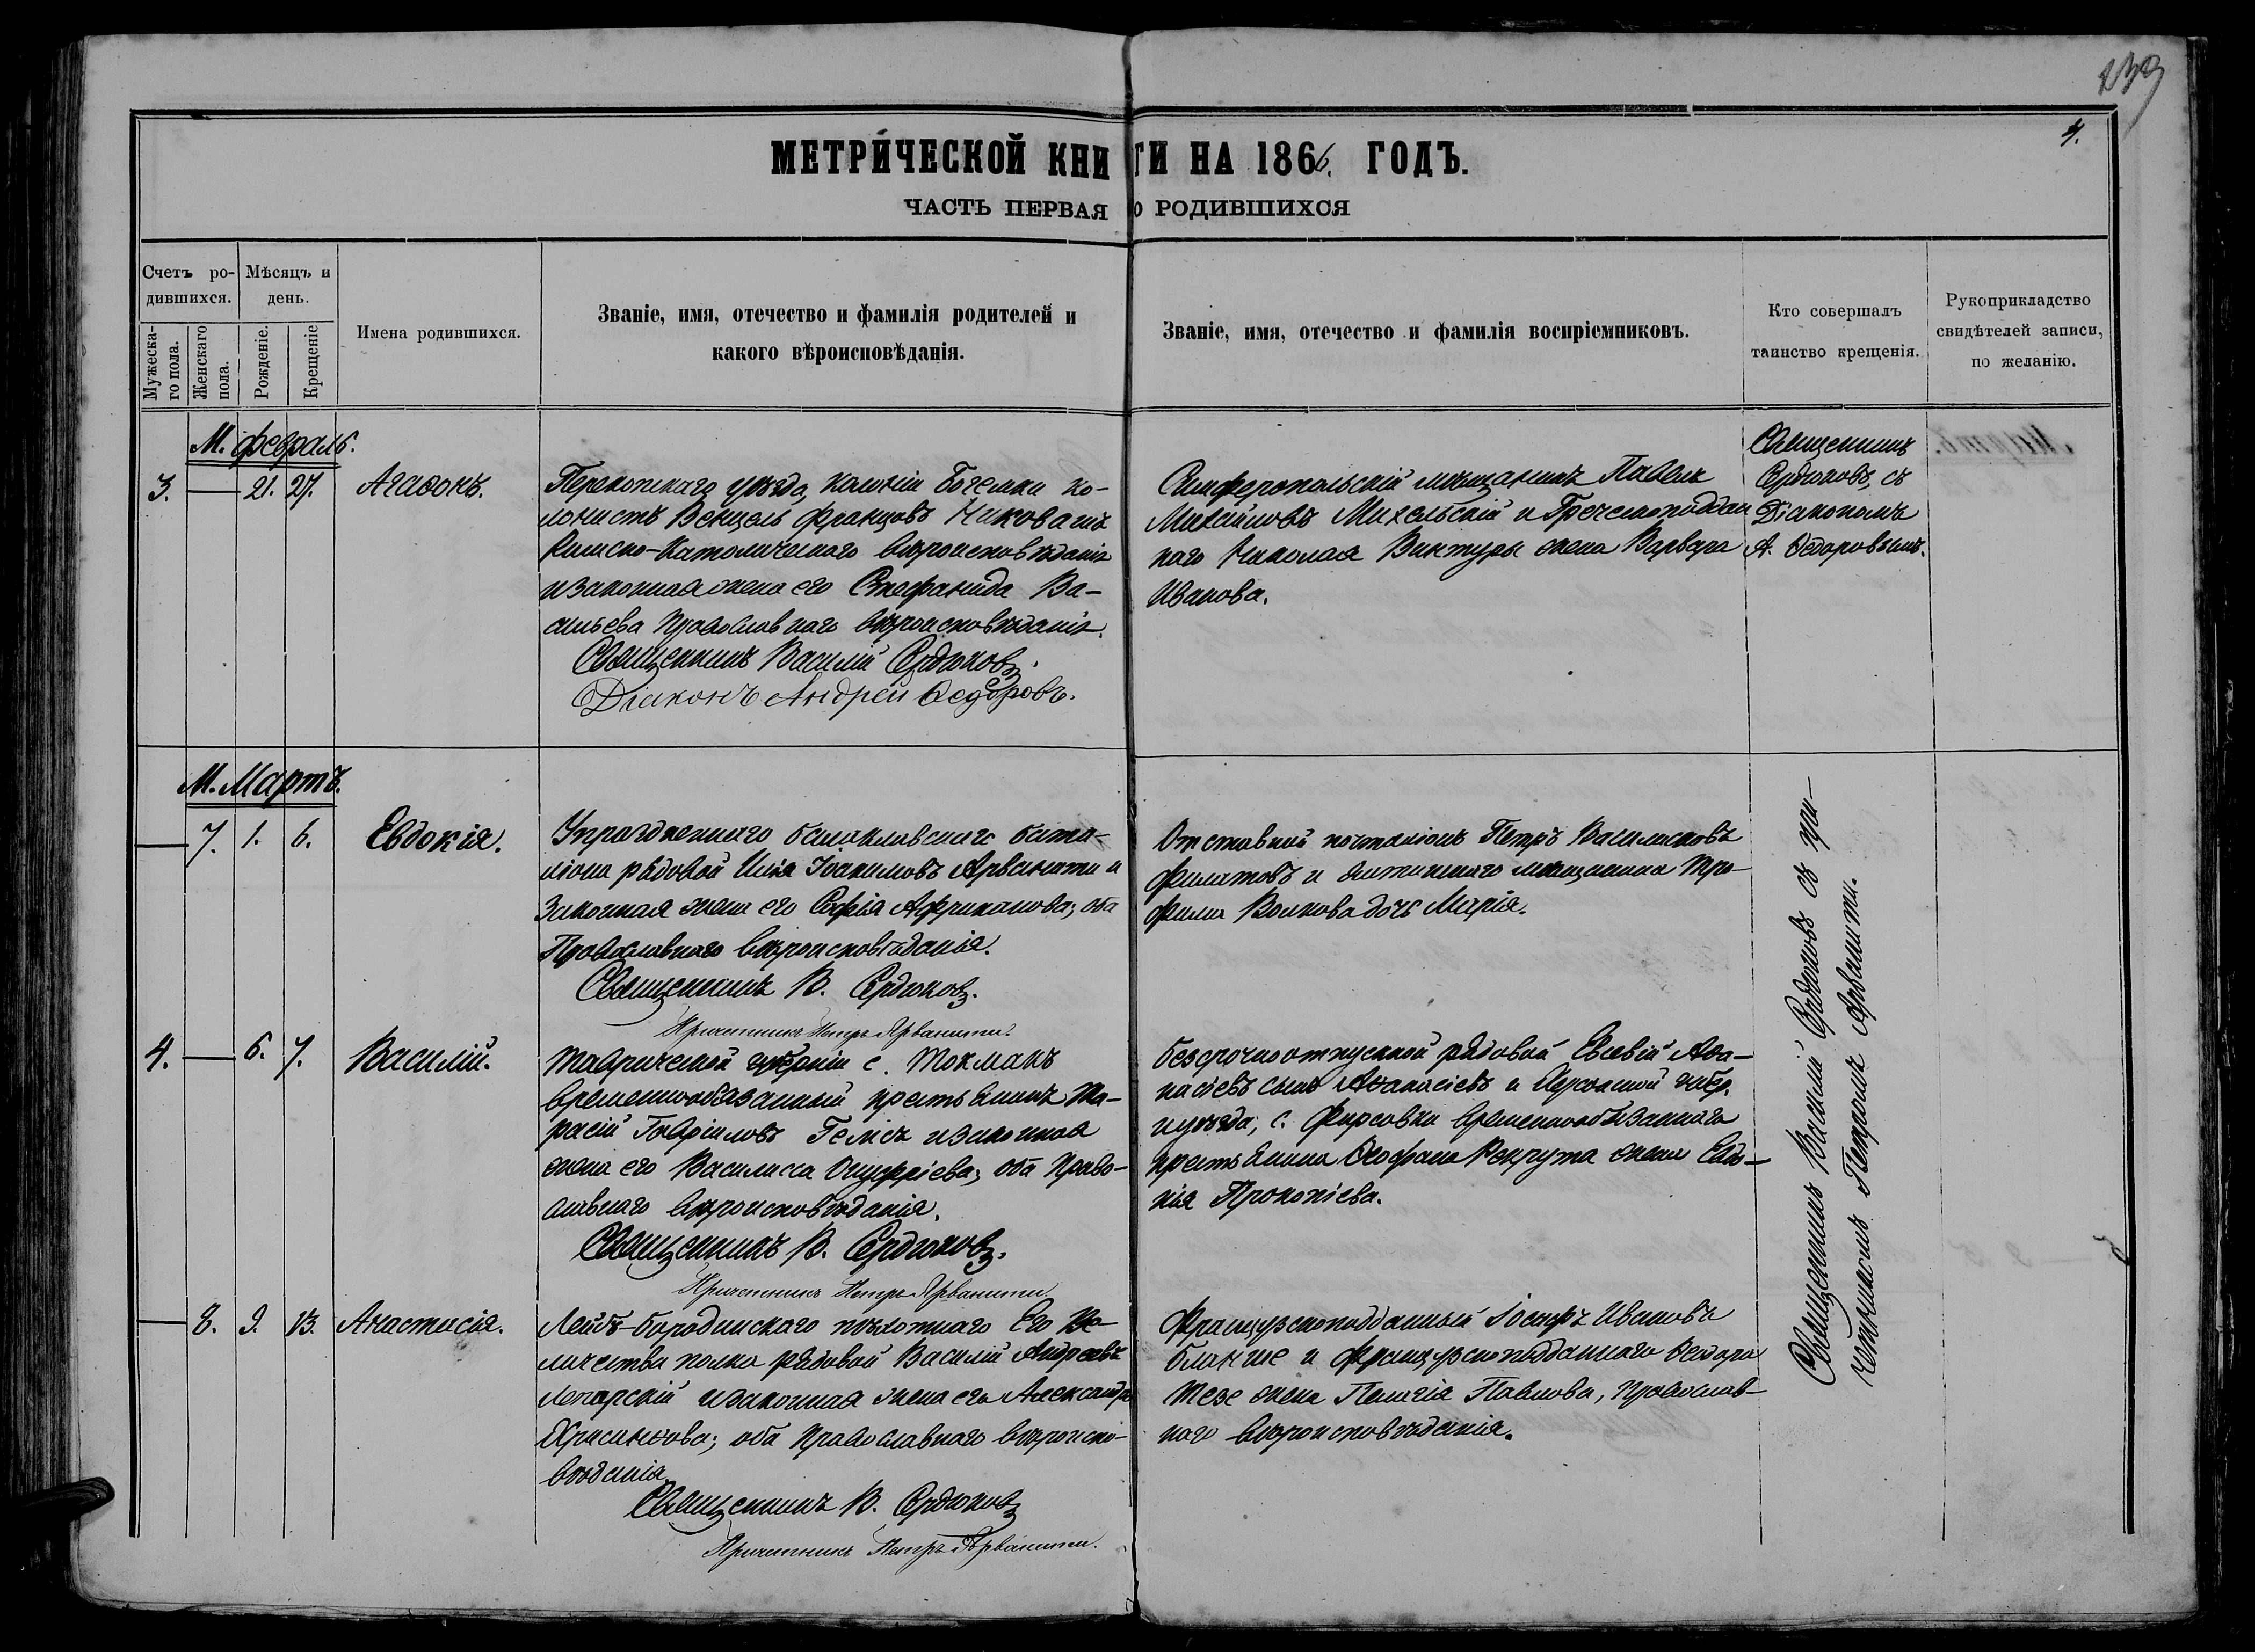 239
4.
МЕТРИЧЕСКОЙ КНИГИ НА 1866. ГОДЪ.
ЧАСТЬ ПЕРВАЯ О РОДИВШИХСЯ
Счетъ ро-
дившихся.
Мѣсяцъ и
день.
Мужеска-
го пола.
Женскаго
пола.
Рожденіе.
Крещеніе
Имена родившихся.
Званіе, имя, отечество и фамилія родителей и
какого вѣроисповѣданія.
Званіе, имя, отечество и фамилія воспріемниковъ.
Кто совершалъ
таинство крещенія.
Рукоприкладство
свидѣтелей записи,
по желанію.
М. февраль.
3. — 21. 27. Агаѳонъ.
Перекопскаго уѣзда, колоніи Богемки ко-
лонистъ Венцель Францовъ
Римско-Католическаго вѣроисповѣданія
и законная жена его Стефанида Ва-
сильева Православнаго вѣроисповѣданія.
Священникъ Василій Сердюковъ.
Діаконъ Андрей Ѳедоровъ.
Симферопольскій мѣщанинъ Павелъ
Михайловъ Михельскій и Греческоподдан
наго Николая Виктуры жена Варвара
Иванова.
Священникъ
Сердюковъ, съ
Діакономъ
А. Ѳедоровымъ.
М. Мартъ.
— 7. 1. 6. Евдокія.
Упраздненнаго балаклавскаго бата-
ліона рядовой Илія Іоакимовъ Арванити и
законная жена его Софія Африканова; оба
Православнаго вѣроисповѣданія.
Священникъ В. Сердюковъ.
Причетникъ Петръ Арванити.
Отставной почталіонъ Петръ Василисковъ
Филатовъ и мѣщанина Тро-
фима Волкова дочь Марія.
4. — 6. 7. Василій.
Таврической губерніи с. Токмакъ
временнообязанный крестьянинъ Та-
расій Гавріиловъ и законная
жена его Василисса Онуфріева; оба Право-
славнаго вѣроисповѣданія.
Священникъ В. Сердюковъ.
Причетникъ Петръ Арванити.
Безсрочноотпускной рядовой Евсевій Аѳа-
насіевъ сынъ Аѳанасіевъ и губер.
и уѣзда, с. Фирсовки временнообязаннаго
крестьянина Ѳеофана Рекрута жена Евдо-
кія Прокопіева.
— 8. 9. 13. Анастасія.
Лейбъ-бородинскаго пѣхотнаго Его Ве-
личества полка рядовой Василій Андреевъ
и законная жена его Александра
Хрисанѳова; оба православнаго вѣроиспо-
вѣданія.
Священникъ В. Сердюковъ
Причетникъ Петръ Арванити.
Французскоподданный Іосифъ Ивановъ
Бланше и французскоподданнаго Ѳеодора
Тезе жена Пелагія Павлова, православ-
наго вѣроисповѣданія.
Священникъ Василій Сердюковъ съ при-
четникомъ Петромъ Арванити.